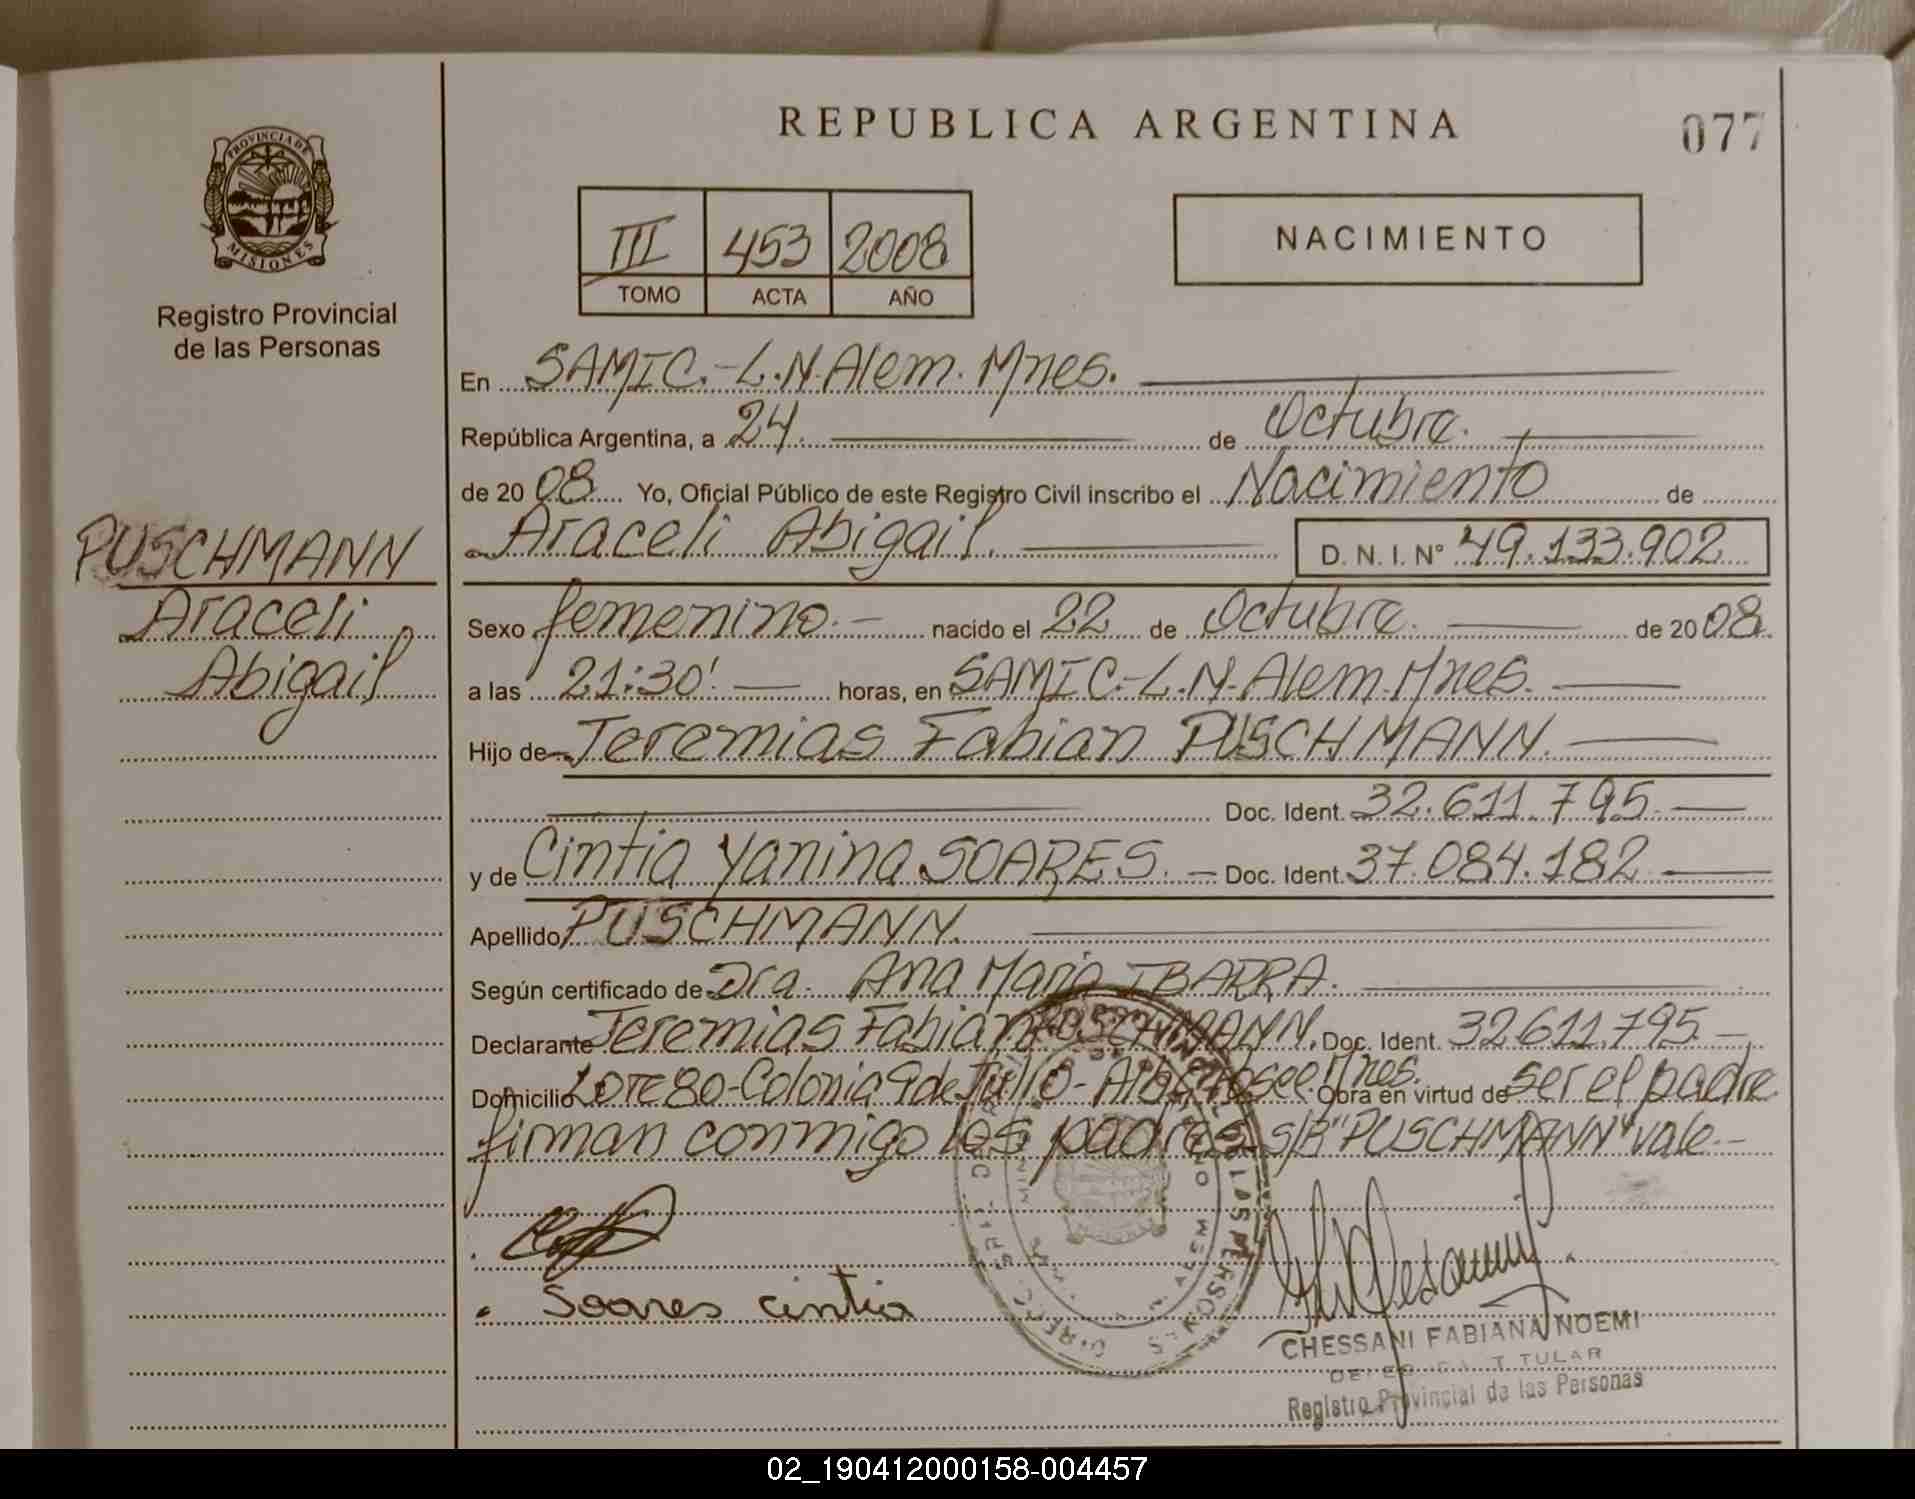 REPUBLICA ARGENTINA
077
PROVINCIA DE
MISIONES
Registro Provincial
de las Personas
III 453 2008
TOMO ACTA AÑO
NACIMIENTO
En SAMIC.-L.N.Alem.Mnes.
República Argentina, a 24. de Octubre.
de 2008 Yo, Oficial Público de este Registro Civil inscribo el Nacimiento de
Araceli Abigail. D. N. I. N° 49.133.902
PUSCHMANN
Araceli
Abigail
Sexo femenino.- nacido el 22 de Octubre. de 2008.
a las 21:30' horas, en SAMIC.-L.N-Alem.Mnes.
Hijo de Jeremias Fabian PUSCHMANN.
Doc. Ident. 32.611.795.
y de Cintia Yanina SOARES. Doc. Ident. 37.084.182
Apellido PUSCHMANN.
Según certificado de Dra. Ana Maria IBARRA.
Declarante Jeremias Fabian PUSCHMANN. Doc. Ident. 32.611.795-
Domicilio Lote 80-Colonia 9 de Julio- Mnes. Obra en virtud de ser el padre
firman conmigo los padres. S/R"PUSCHMANN"vale.-
Soares cintia
CHESSANI FABIANA NOEMI
TITULAR
Registro Provincial de las Personas
02_190412000158-004457